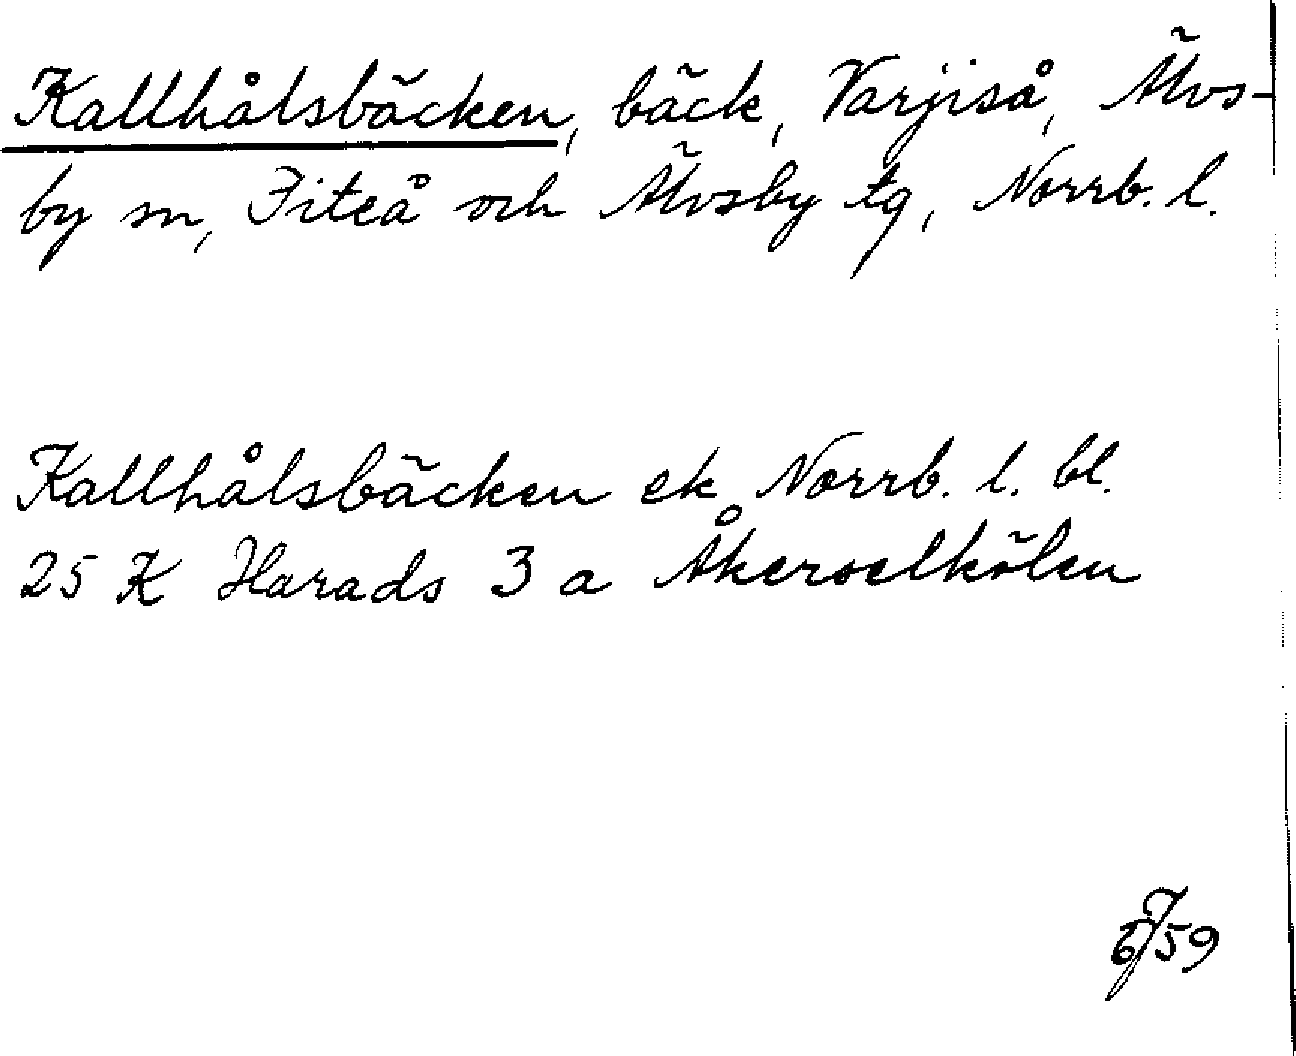 Kallhålsbäcken, bäck, Varjiså, Älvs-
by sn, Piteå och Älvsby tg, Norrb. l.
Kallhålsbäcken ek Norrb. l. bl.
25 K Harads 3 a Åkerselkölen